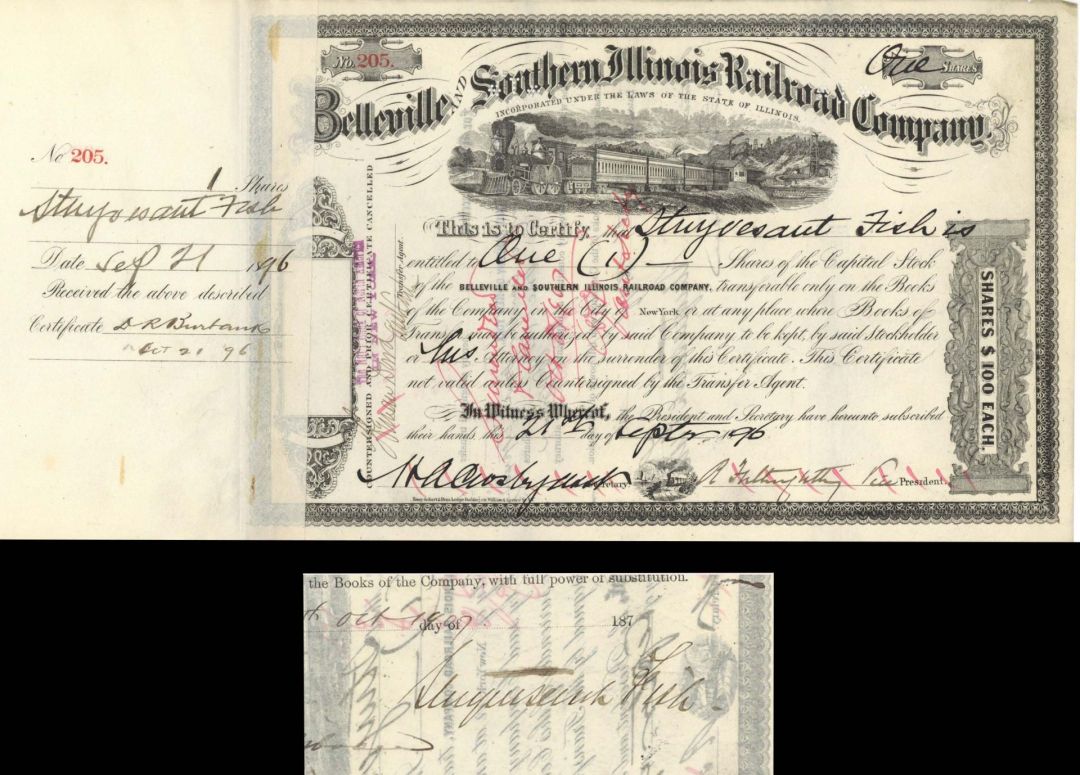 No 205.
1 Shares
Stuyvesant Fish
Date Sep 21 1896
Received the above described
Certificate D R Burbank
Oct 20 96
No. 205.
One SHARES
Belleville AND Southern Illinois Railroad Company.
INCORPORATED UNDER THE LAWS OF THE STATE OF ILLINOIS.
This is to Certify that Stuyvesant Fish is
entitled to One (1) Shares of the Capital Stock
of the BELLEVILLE AND SOUTHERN ILLINOIS RAILROAD COMPANY, transferable only on the Books
of the Company in the City of New York or at any place where Books of
Transfer may be authorized by said Company to be kept, by said Stockholder
or his Attorney on the surrender of this Certificate. This Certificate
not valid unless Countersigned by the Transfer Agent.
In Witness Whereof, the President and Secretary have hereunto subscribed
their hands this 21st day of Septr 1896
Secretary
Vice President.
COUNTERSIGNED AND PRIOR CERTIFICATE CANCELLED
Transfer Agent.
SHARES $100 EACH.
the Books of the Company, with full power of substitution.
Oct day of 187
Stuyvesant Fish